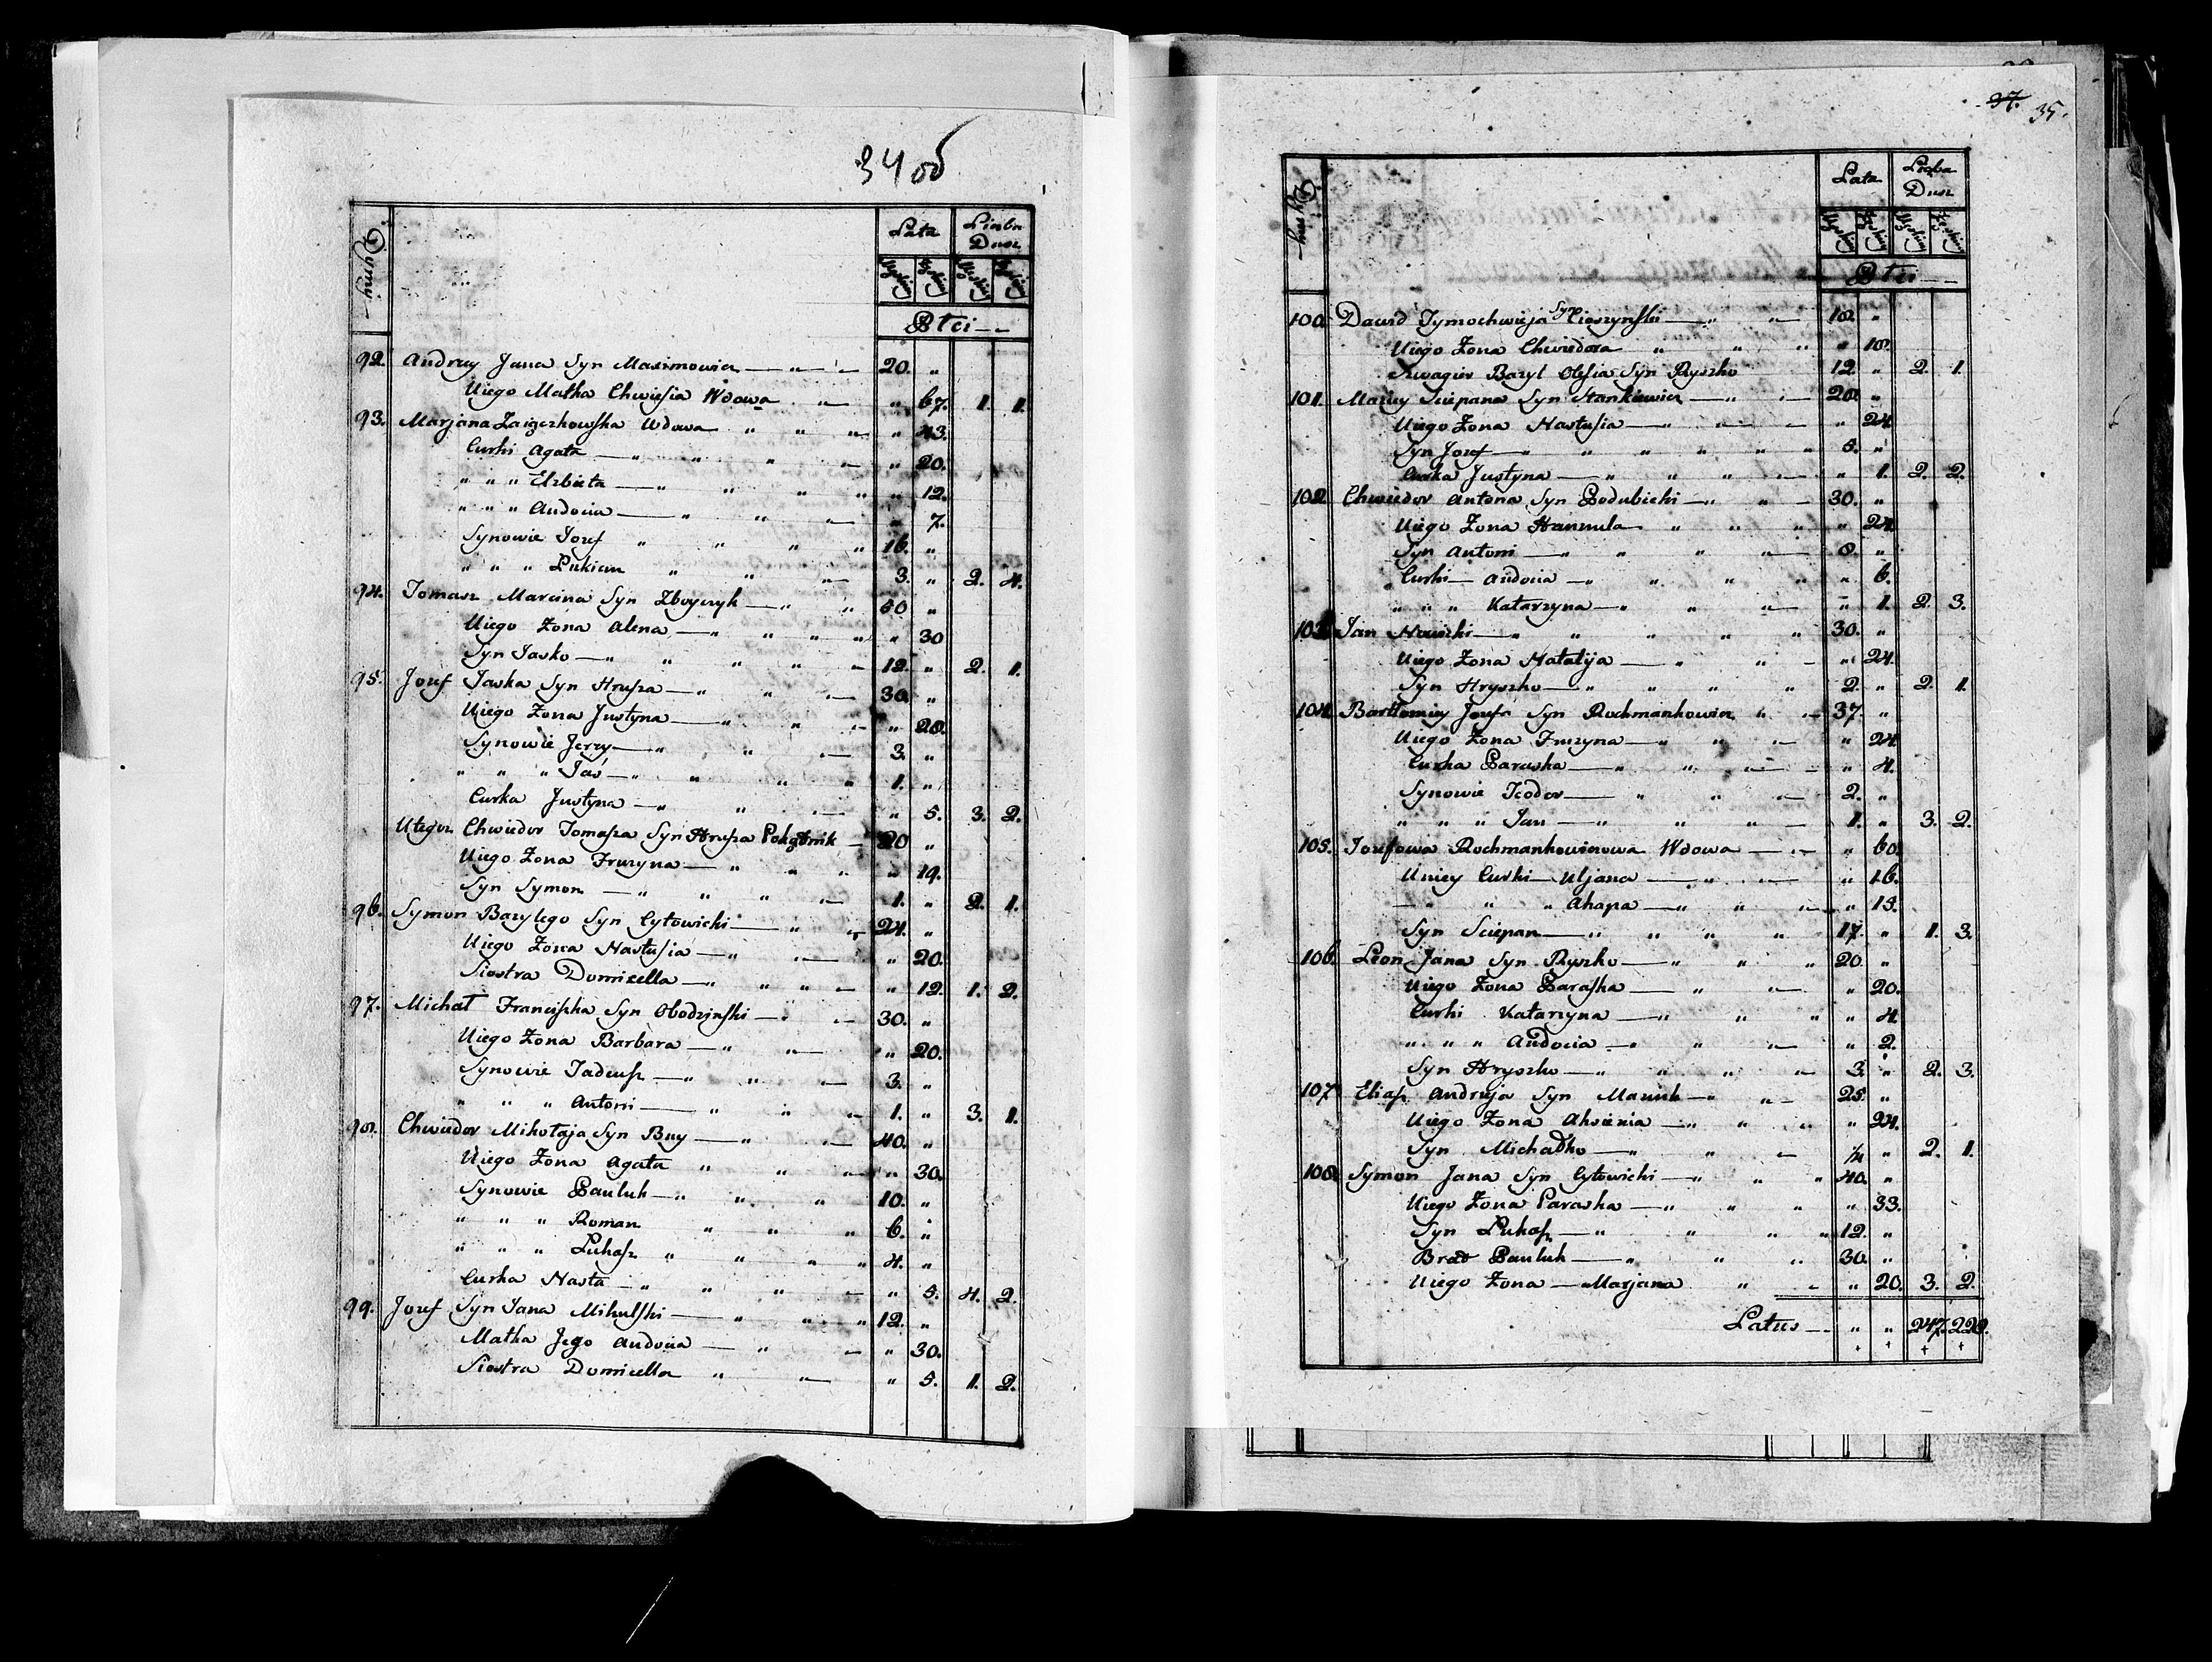 34 об
Dymy
Lata Liczba Dusz
Męskiey Żeńskiey Męskiey Żeńskiey
Płci
92. Andrzey Jana Syn Maximowicz 20. "
Uiego Matka Chwiesia Wdowa " 67. 1. 1.
93. Marjana Zaiączkowska Wdowa " 43.
Curki Agata " 20.
" " " Elzbieta " 12.
" " " Audocia " 7.
Synowie Jozef 16. "
" " " Lukian 3. " 2. 4.
94. Tomasz Marcina Syn Zboyczyk 50 "
Uiego Żona Alena " 30
Syn Jasko 12. " 2. 1.
95. Jozef Jaska Syn Hrusza 30. "
Uiego Żona Justyna " 20.
Synowie Jerzy 3. "
" " " Jaś 1. "
Curka Justyna " 5. 3. 2.
Utegoz Chwiedor Tomasza Syn Hrusza Pokątnik 20 "
Uiego Żona Fruzyna " 19.
Syn Symon 1. " 2. 1.
96. Symon Bazylego Syn Cytowicki 24. "
Uiego Żona Nastusia " 20.
Siostra Domicella " 12. 1. 2.
97. Michał Franciszka Syn Obodzinski 30. "
Uiego Żona Barbara " 20.
Synowie Tadeusz 3. "
" " " Antoni 1. " 3. 1.
98. Chwiedor Mikołaja Syn Buy 40. "
Uiego Żona Agata " 30.
Synowie Pauluk 10. "
" " " Roman 6. "
" " " Lukasz 4. "
Curka Nasta " 5. 4. 2.
99. Jozef Syn Jana Mikulski 12. "
Matka Jego Audocia " 30.
Siostra Domicella " 5. 1. 2.
37. 35.
Dymy
Lata Liczba Dusz
Męskiey Żeńskiey Męskiey Żeńskiey
Płci
100. Dawid Tymochwieja Syn Cieszynski 18. "
Uiego Żona Chwiedora " 18.
Szwagier Bazyl Olesia Syn Ryszko 12. " 2. 1.
101. Maciey Sciepana Syn Stankiewicz 28. "
Uiego Żona Nastusia " 24.
Syn Jozef 5. "
Curka Justyna " 1. 2. 2.
102. Chwiedor Antona Syn Podubicki 30. "
Uiego Żona Hannula " 24.
Syn Antoni 8. "
Curki Audocia " 6.
" " " Katarzyna " 1. 2. 3.
103. Jan Nowicki 30. "
Uiego Żona Natalija " 24.
Syn Hryszko 2. " 2. 1.
104. Bartłomiey Jozefa Syn Rochmankowicz 37. "
Uiego Żona Fruzyna " 24.
Curka Paraska " 4.
Synowie Teodor 2. "
" " " Jan 1. " 3. 2.
105. Jozefowa Rochmankowiczowa Wdowa " 60.
Uniey Curki Uljana " 16.
" " Ahapa " 15.
Syn Sciepan 17. " 1. 3.
106. Leon Jana Syn Ryszko 20. "
Uiego Żona Paraska " 20.
Curki Katarzyna " 4.
" " " Audocia " 2.
Syn Hryszko 3. " 2. 3.
107. Eliasz Andrzeja Syn 25. "
Uiego Żona Aksienia " 24.
Syn Michałko 1/4 " 2. 1.
108. Symon Jana Syn Cytowicki 40. "
Uiego Żona Paraska " 33.
Syn Lukasz 12. "
Brat Pauluk 30. "
Uiego Żona Marjana " 20. 3. 2.
Latus " " 247. 229.